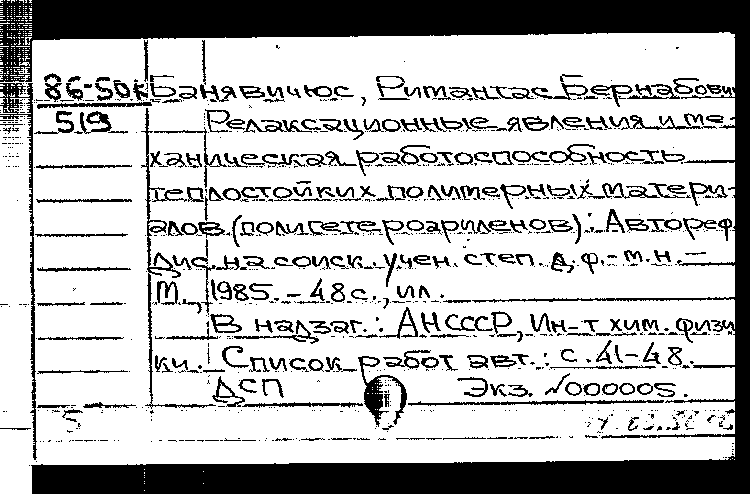 86-50к Банявичюс, Римантас Бернабови
519 Релаксационные явления и ме-
ханическая работоспособность
теплостойких полимерных матери-
алов (полигетероариленов): Автореф.
дис. на соиск. учен. степ. д. ф.-м.н. –
М., 1985. – 48 с., ил.
В надзаг.: АН СССР, Ин-т хим. физи-
ки. Список работ авт.: с. 41-48.
ДСП Экз. №000005.
5